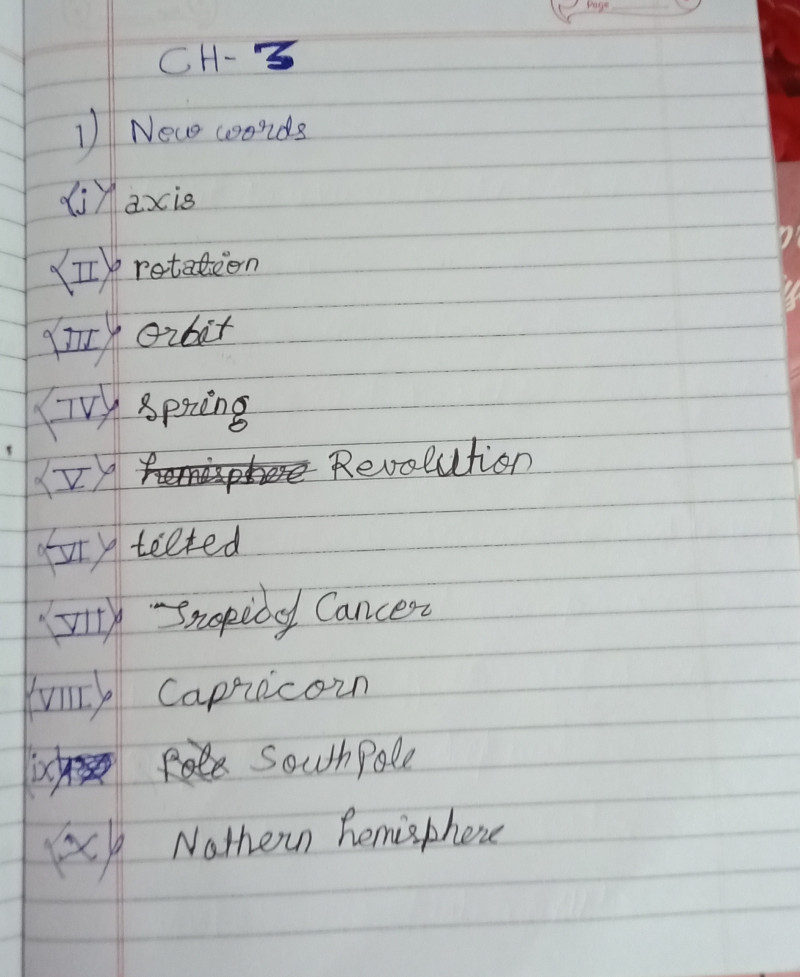 Page
CH- 3
1) New words
(i) axis
(II) rotation
(III) Orbit
(IV) spring
(V) hemisphere Revolution
(VI) tilted
(VII) Tropic of Cancer
(VIII) Capricorn
(ix) Pole South Pole
(X) Nothern hemisphere